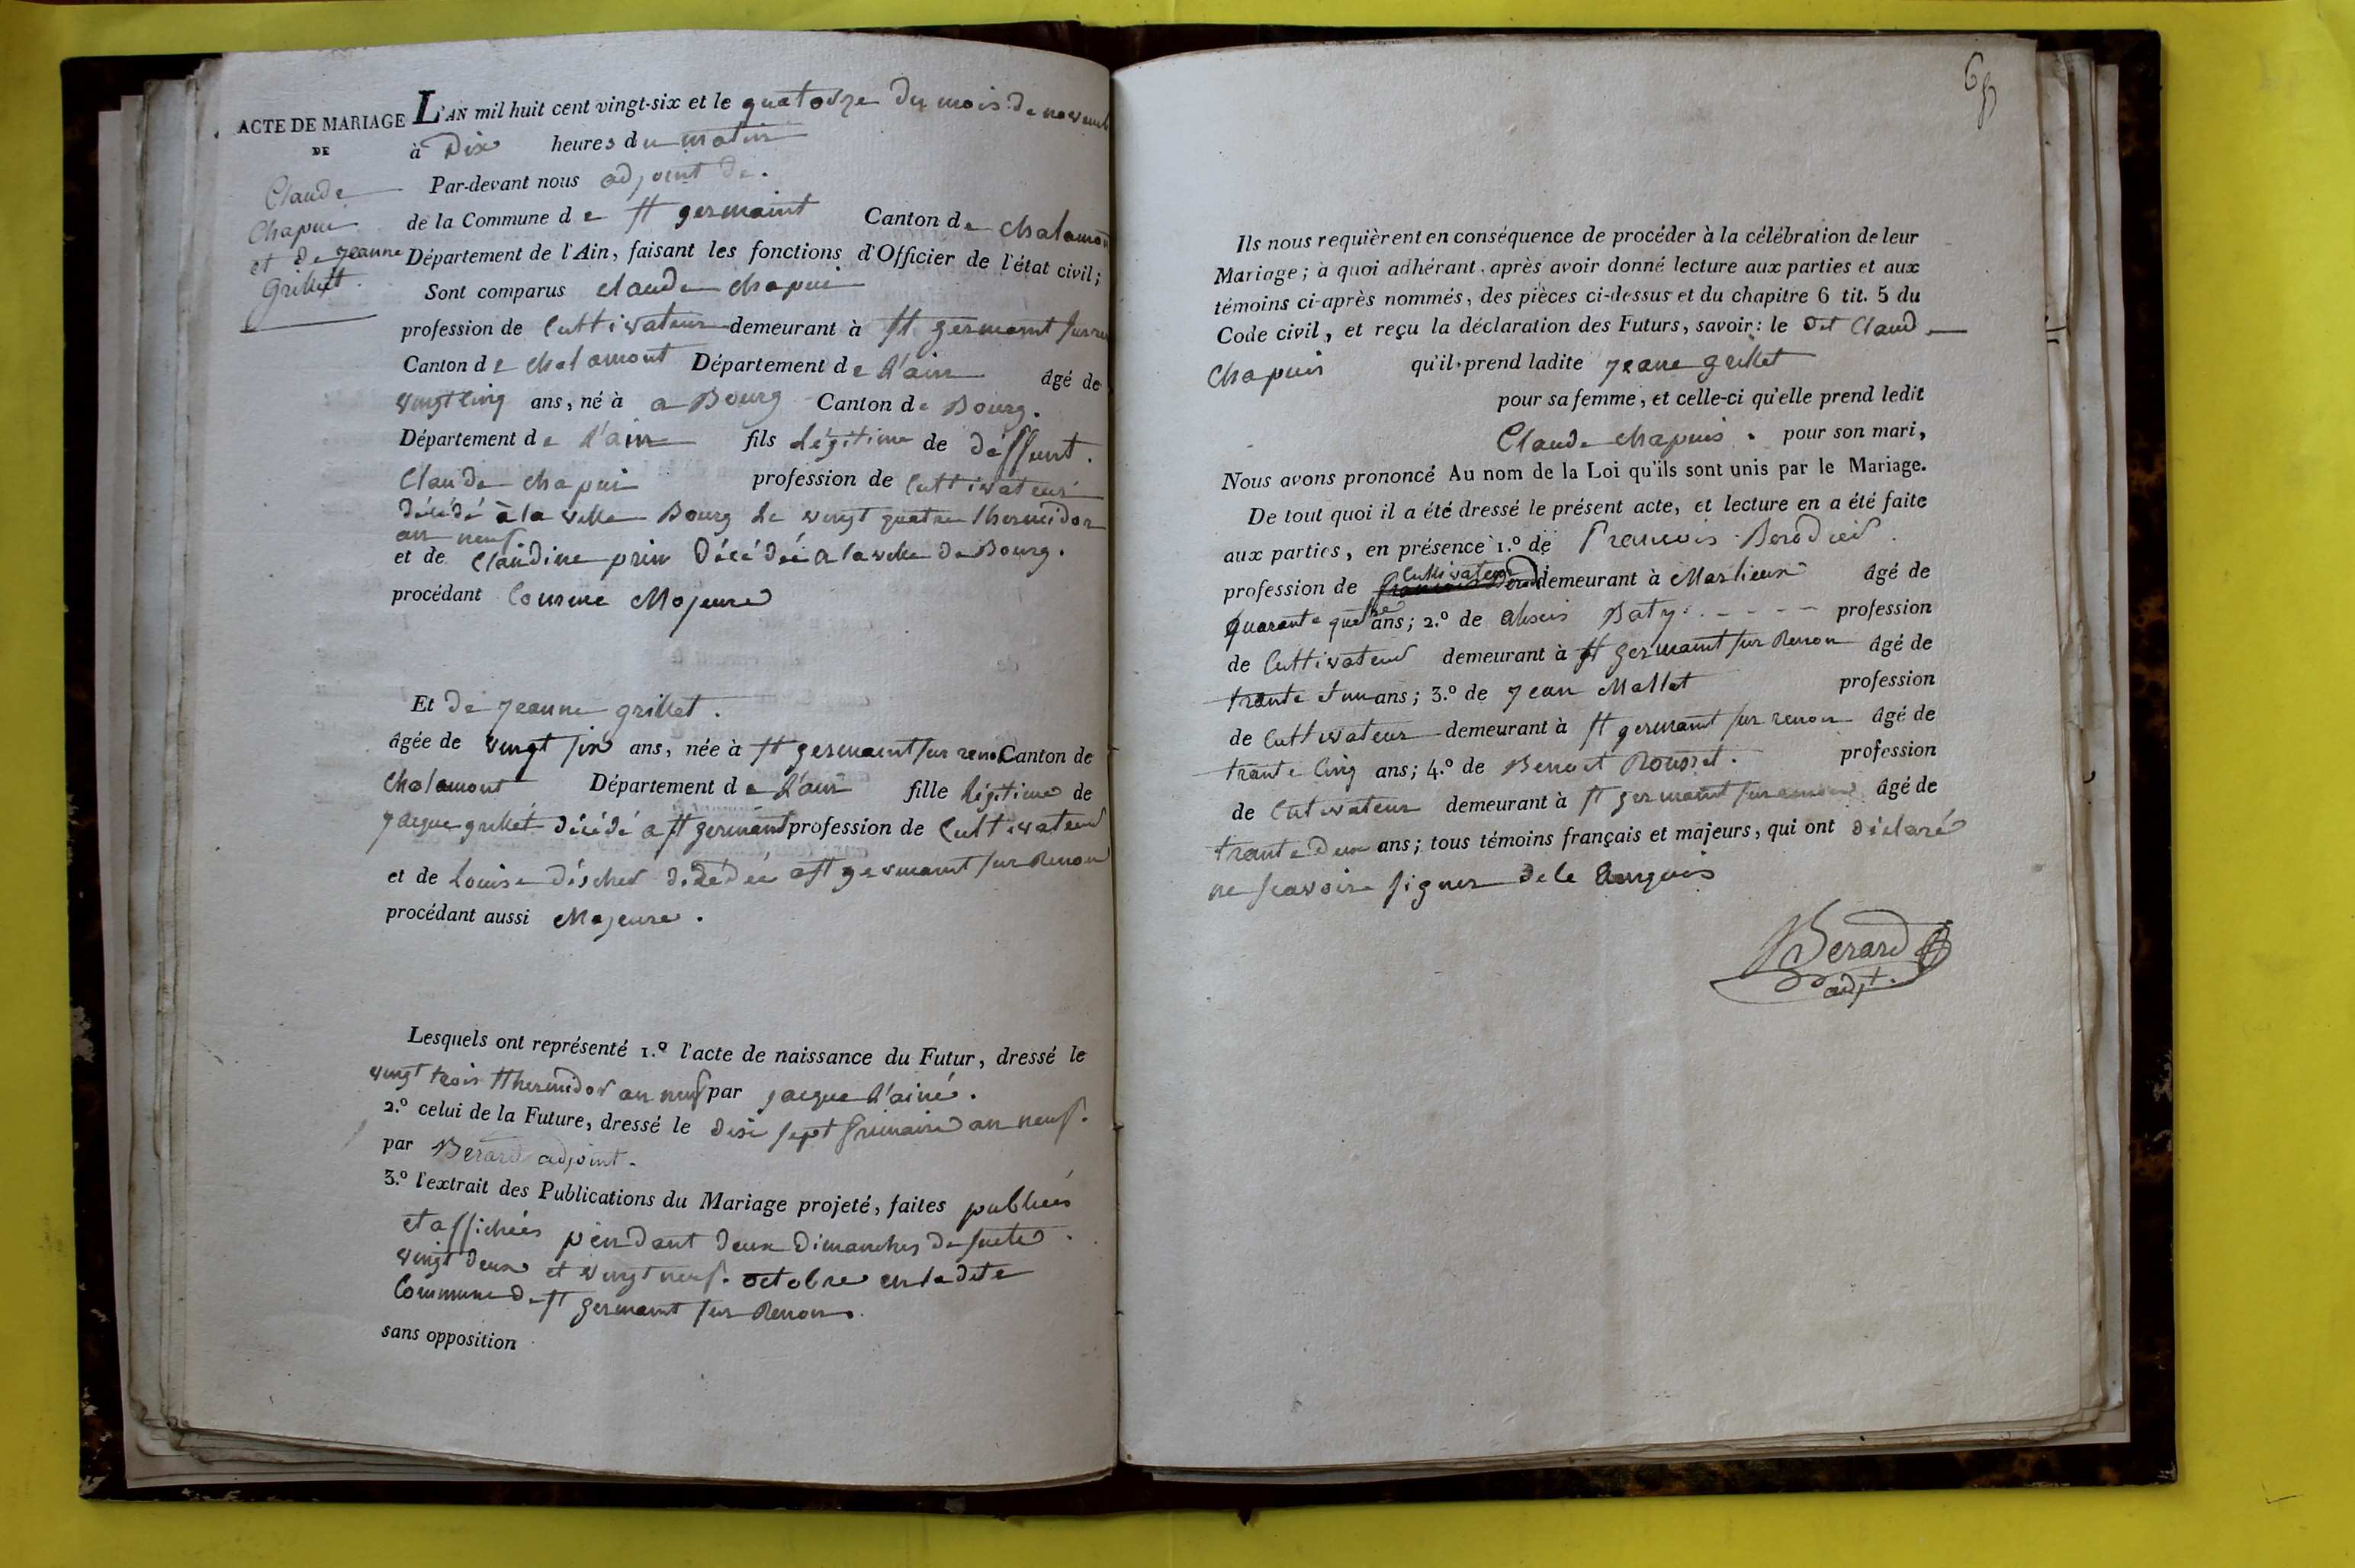 ACTE DE MARIAGE
DE
Claude
Chapui
et de jeanne
Grillet.
L'AN mil huit cent vingt-six et le quatorze du mois de novemb
à Dix heures du matin
Par-devant nous adjoint de.
de la Commune de st germaint Canton de chalamon
Département de l'Ain, faisant les fonctions d'Officier de l'état civil;
Sont comparus claude chapui
profession de Cultivateur demeurant à st germaint sur
Canton de chalamont Département de l'ain âgé de
vingt cinq ans, né à a Bourg Canton de Bourg.
Département de l'ain fils légitime de déffunt.
Claude chapui profession de Cultivateur
décédé à la ville Bourg le vingt quatre thermidor
an neuf
et de Claudine prin décédée a la ville de Bourg.
procédant comme Majeure
Et de jeanne grillet.
âgée de vingt six ans, née à st germaint sur reno Canton de
chalamont Département de l'ain fille légitime de
jacque grillet décédé a st germaint profession de Cultivateur
et de Louise décher décédée a st germaint sur Renon
procédant aussi Majeure.
Lesquels ont représenté 1.º l'acte de naissance du Futur, dressé le
vingt trois thermidor an neuf par jacque l'ainé.
2.º celui de la Future, dressé le dixe sept frimaire an neuf.
par Berard adjoint.
3.º l'extrait des Publications du Mariage projeté, faites publiées
et affichées pendant deux dimanches de suite.
vingt deux et vingt neuf. octobre en la dite
Commune de st germaint sur Renon.
sans opposition
Ils nous requièrent en conséquence de procéder à la célébration de leur
Mariage; à quoi adhérant, après avoir donné lecture aux parties et aux
témoins ci-après nommés, des pièces ci-dessus et du chapitre 6 tit. 5 du
Code civil, et reçu la déclaration des Futurs, savoir: le dit Claude
Chapuis qu'il prend ladite jeane grillet
pour sa femme, et celle-ci qu'elle prend ledit
Claude chapuis. pour son mari,
Nous avons prononcé Au nom de la Loi qu'ils sont unis par le Mariage.
De tout quoi il a été dressé le présent acte, et lecture en a été faite
aux parties, en présence 1.º de francois
profession de Cultivateur demeurant à Marlieux âgé de
quarante quatre ans; 2.º de alexis Baty. profession
de Cultivateur demeurant à st germaint sur Renon âgé de
trante et un ans; 3.º de jean Mallet profession
de Cultivateur demeurant à st germaint sur renon âgé de
trante cinq ans; 4.º de Benoit Rousset. profession
de Cutivateur demeurant à st germaint âgé de
trante deux ans; tous témoins français et majeurs, qui ont déclaré
ne scavoire signer de le
Berard
adjt.